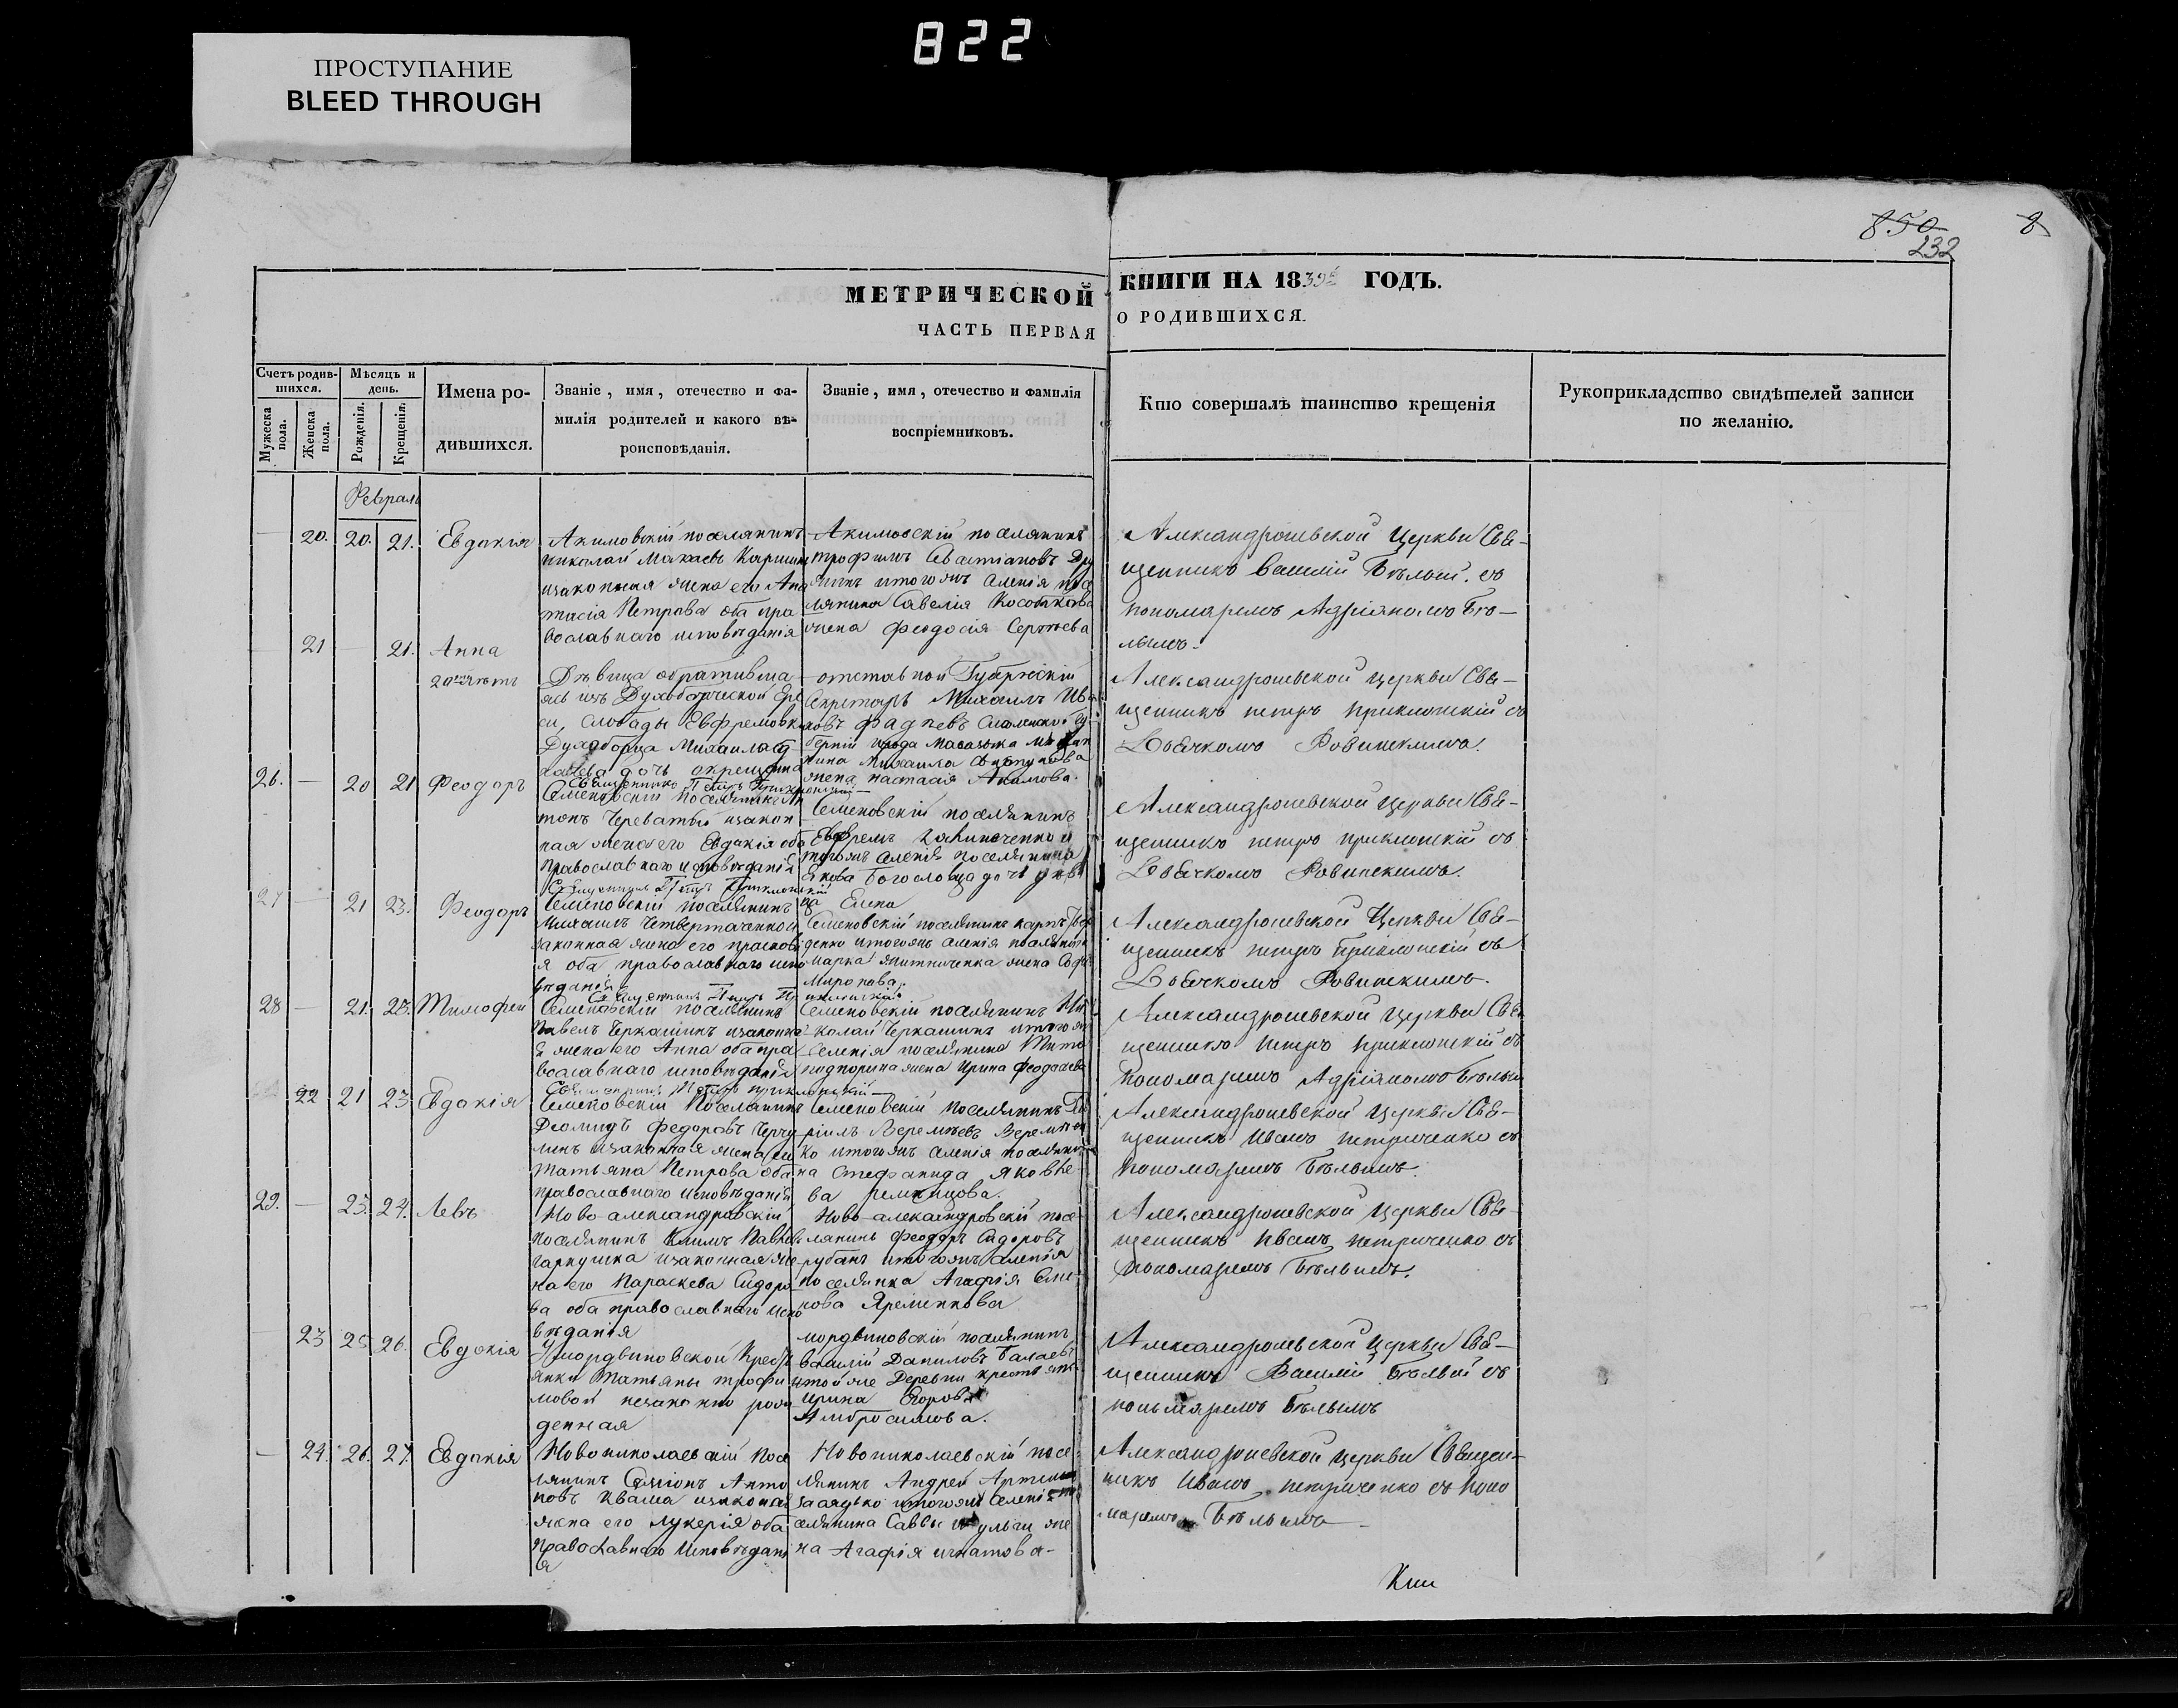 822
ПРОСТУПАНИЕ
BLEED THROUGH
850
232
8
МЕТРИЧЕСКОЙ КНИГИ НА 1839 ГОДЪ.
ЧАСТЬ ПЕРВАЯ О РОДИВШИХСЯ.
Счетъ родив-
шихся.
Мужеска
пола.
Женска
пола.
Мѣсяцъ и
день.
Рожденія.
Крещенія.
Имена ро-
дившихся.
Званіе, имя, отечество и фа-
милія родителей и какого вѣ-
роисповѣданія.
Званіе, имя, отечество и фамилія
воспріемниковъ.
Кто совершалъ таинство крещенія
Рукоприкладство свидѣтелей записи
по желанію.
Февраль
20. 20. 21. Евдокія
Акимовскій поселянинъ
Николай Макаевъ
изаконная жена его Ана
тасія Петрова оба пра
вославнаго исповѣданія
Акимовскій поселянинъ
трофимъ Севастіановъ
итогожъ селенія посе
лянина Савелія
жена Феодосія Сергѣева
Александроневской Церкви Свя-
щенникъ Василій Бѣлый. съ
пономаремъ Адріяномъ Бѣ-
лымъ.
21 21. Анна
Дѣвица обратившая
ась изъ Духоборческой Ере
си, слободы Ефремовки
Духоборца Михаила
дочь окрещена
Священникъ Петръ Приклонскій
отставной Губернскій
Секретарь Михаилъ Ива
новъ Фадѣевъ Смоленской Гу
берніи города Масальска мѣщан
нина Михаила
жена настасія Акимова.
Александроневской церкви Свя-
щенникъ петръ приклонскій съ
Дьячкомъ Ровинскимъ.
26. 20 21 Феодоръ
Семеновскій поселянинъ Ан
тонъ Череватый изакон
ная жена его Евдокія оба
православнаго исповѣданія
Священникъ Петръ Приклонскій
Семеновскій поселянинъ
Ефремъ
тогожъ селенія поселянина
Якова Богослова дочь дѣви
ца Елена
Александроневской Церкви Свя-
щенникъ петръ приклонскій съ
Дьячкомъ Ровинскимъ.
27 21 23. Феодоръ
Семеновскій поселянинъ
Михаилъ Четверточенко и
законная жена его прасковi
я оба православнаго испо
вѣданія
Священникъ Петръ Приклонскій
Семеновскій поселянинъ карпъ
денко итогожъ селенія поселянина
марка жена Софія
Миронова.
Александроневской Церкви Свя-
щенникъ петръ Приклонскій съ
Дьячкомъ Ровинскимъ.
28 21. 23. Тимофей
Семеновскій поселянинъ
Павелъ Черкашинъ изаконна
я жена его Анна оба пра
вославнаго исповѣданія
Священникъ Петръ приклонскій
Семеновскій поселянинъ Ни
колай Черкашинъ итогожъ
Селенія поселянина Тита
подпорина жена Ирина Феодосіева
Александроневской Церкви Свя
щенникъ Петръ приклонскій съ
Пономаремъ Адріяномъ Бѣлым
22 21 23 Евдокія
Семеновскій Поселянинъ
Діомидъ Федоровъ
изаконная жена его
Татьяна Петрова оба
православнаго исповѣданія
Семеновскій поселянинъ
Веремѣевъ
ко итогожъ селенія поселянин
на Стефанида Яковле-
ва
Александроневской Церкви Свя-
щенникъ Иванъ петриченко съ
Пономаремъ Бѣлымъ.
29. 23. 24. Левъ
Ново-александровскій
поселянинъ Климъ Павлов
гаркушка изаконная же
на его Параскева Сидоро
ва оба православнаго испо
вѣданія
Ново-александровскій посе-
лянинъ Феодоръ Сидоровъ
рубанъ итогожъ селенія
поселянка Агафія Семе-
нова Яременкова
Александроневской Церкви Свя-
щенникъ Иванъ петриченко съ
Пономаремъ Бѣлымъ.
23 25 26. Евдокія
Умордвиновской Крест
янки Татьяны трофи
мовой незаконно рож
денная
мордвиновскій поселянинъ
василій Даниловъ Балаевъ
итой же Деревни крестьянк
ирина Егорова
Амбросимова.
Александроневской Церкви Свя-
щенникъ Василій Бѣлый съ
поньмаремъ Бѣлымъ
24. 26. 27. Евдокія
Новониколаевскій посе
лянинъ Семіонъ Анто
новъ Кваша изаконая
жена его лукерія оба
православнаго исповѣдані
я
Новониколаевскій посе-
лянинъ Андрей Артемов
итогожъ селенія по
селянина Саввы Шульги же
на Агафія игнатова-
Александроневской церкви Священ-
никъ Иванъ петриченко съ поно
маремъ Бѣлымъ
Кни